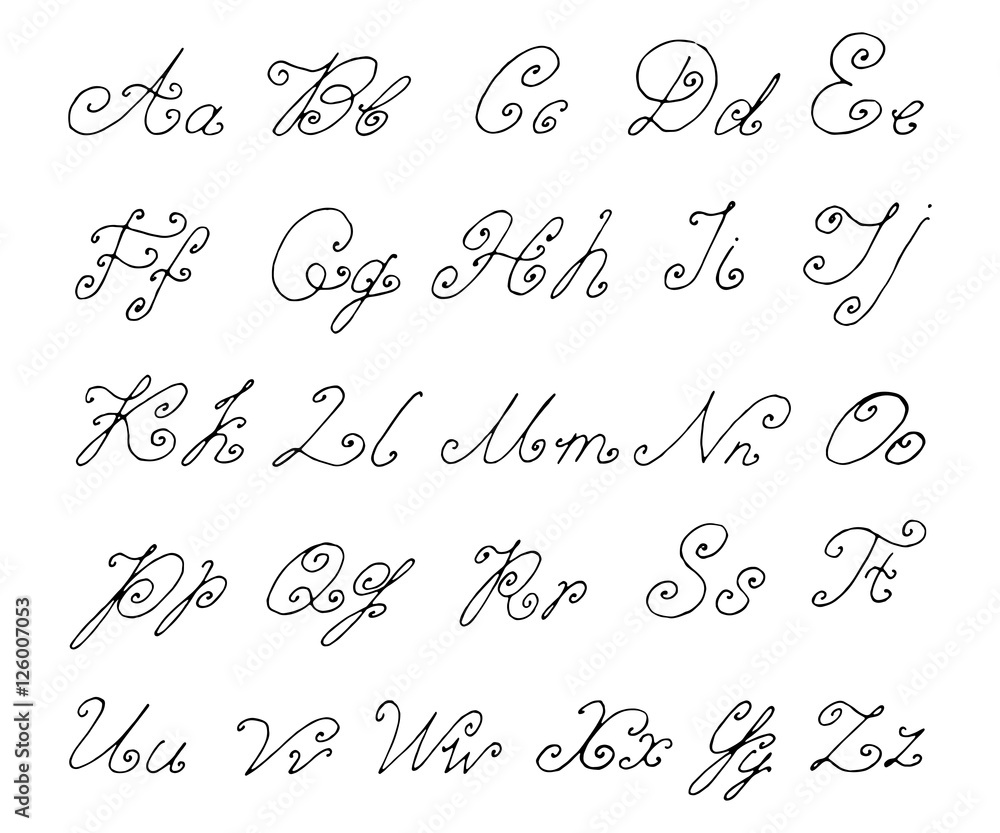 Aa Bb Cc Dd Ee
Ff Gg Hh Ii Jj
Kk Ll Mm Nn Oo
Pp Qq Rr Ss Tt
Uu Vv Ww Xx Yy Zz
Adobe Stock | #126007053